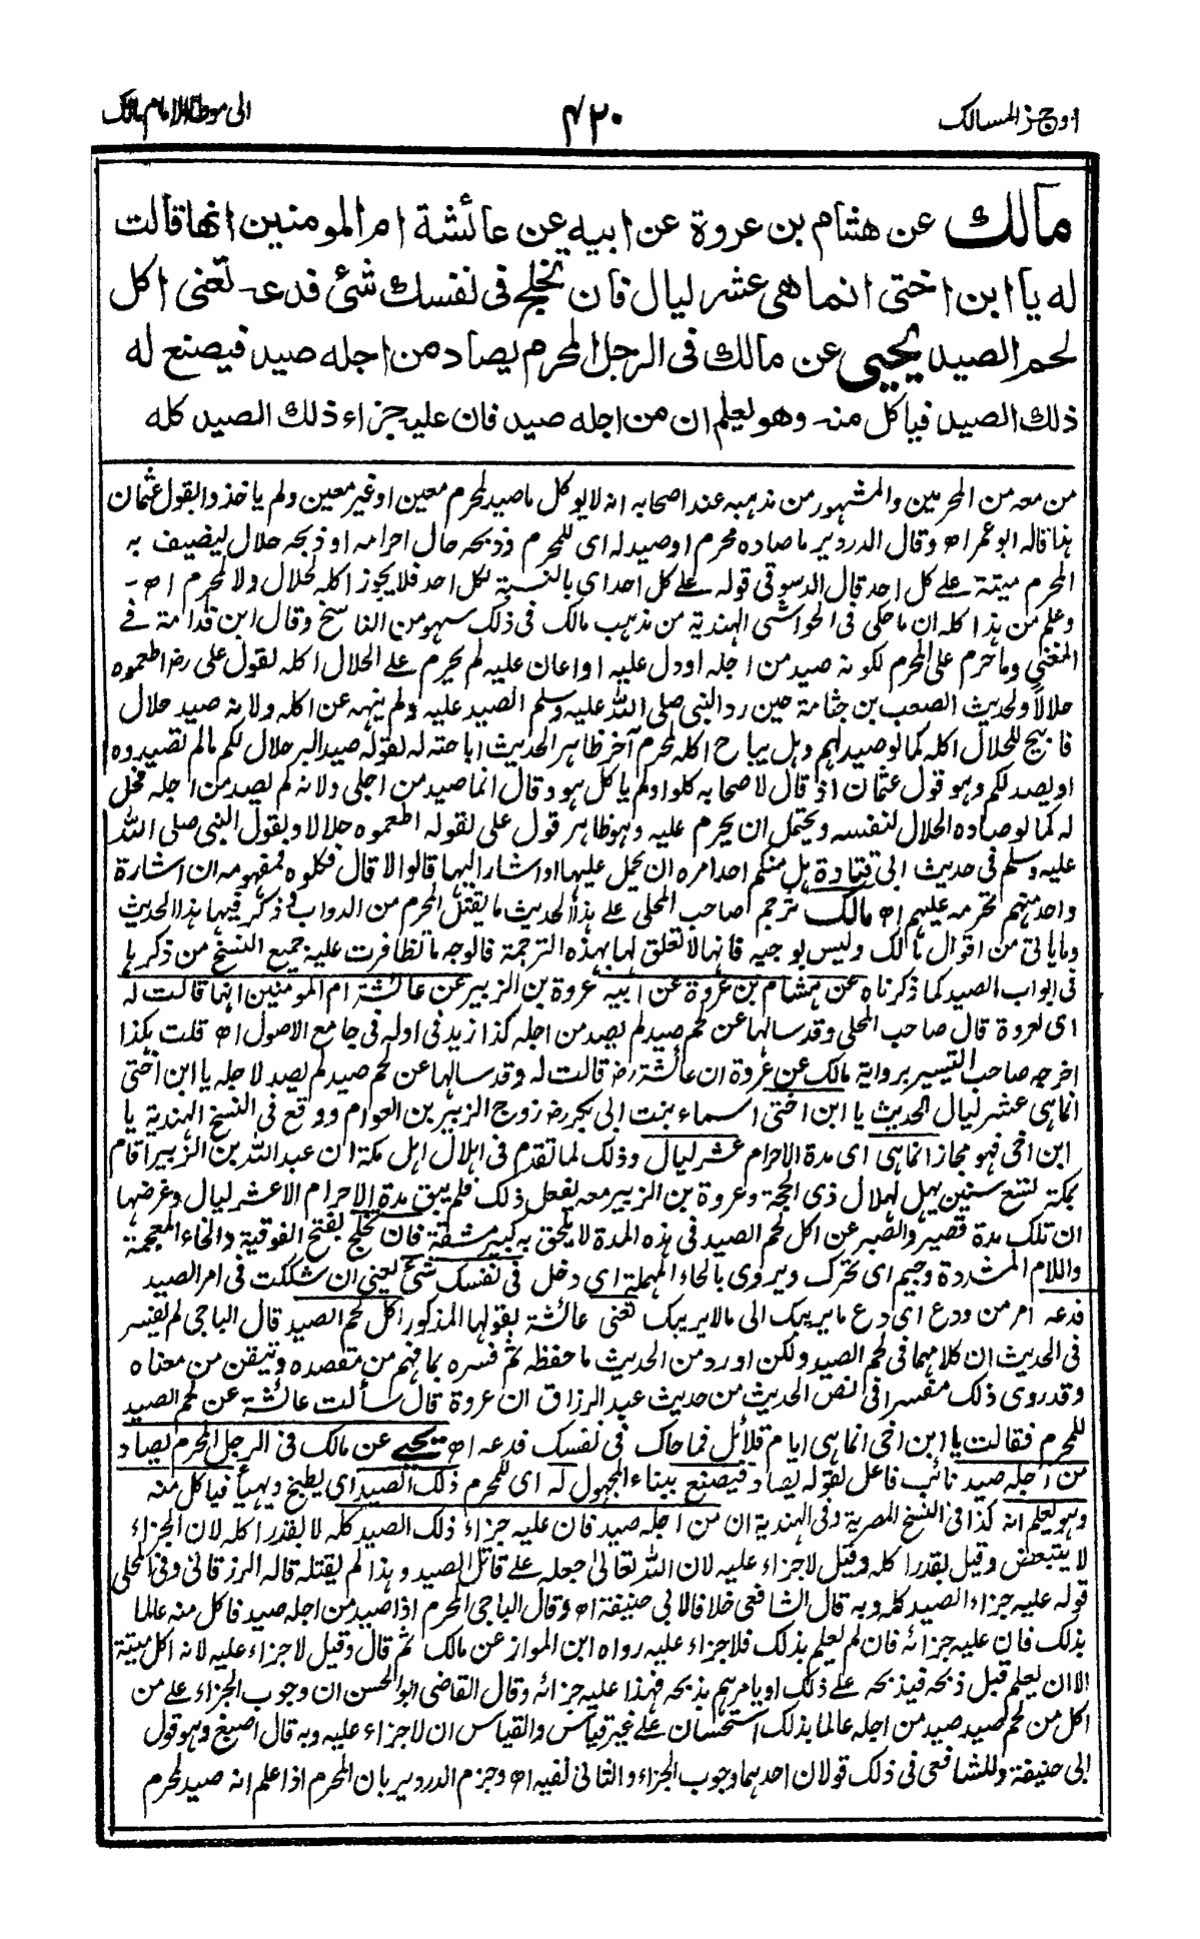 اوجز المسالك
٤٢٠
الى موطأ الامام مالك
مالك عن هشام بن عروة عن ابيه عن عائشة ام المومنين انها قالت
له يا ابن اختى انما هى عشر ليال فان تخلج فى نفسك شئ فدعه تعنى اكل
لحم الصيد يحيى عن مالك فى الرجل المحرم يصاد من اجله صيد فيصنع له
ذلك الصيد فياكل منه وهو يعلم ان من اجله صيد فان عليه جزاء ذلك الصيد كله
من معه من المحرمين والمشهور من مذهبه عند اصحابه انه لا يوكل ما صيد لمحرم معين او غير معين ولم ياخذوا بقول عثمان
هذا قاله ابو عمر اه وقال الدردير ما صاده محرم او صيد له اى للمحرم وذبحه حال احرامه او ذبحه حلال ليضيف به
المحرم ميتة على كل احد قال الدسوقى قوله على كل احد اى بالنسبة لكل احد فلا يجوز اكله لحلال ولا لمحرم اه -
وعلم من هذا كله ان ما حكى فى الحواشى الهندية من مذهب مالك فى ذلك سهو من الناسخ وقال ابن قدامة فى
المغنى وما حرم على المحرم لكونه صيد من اجله او دل عليه او اعان عليه لم يحرم على الحلال اكله لقول على رض اطعموه
حلالا ولحديث الصعب بن جثامة حين رد النبى صلى الله عليه وسلم الصيد عليه ولم ينهه عن اكله ولانه صيد حلال
فابيح للحلال اكله كما لو صيد لهم وهل يباح اكله لمحرم آخر ظاهر الحديث اباحته له لقوله صيد البر حلال لكم ما لم تصيدوه
او يصد لكم وهو قول عثمان اذ قال لاصحابه كلوا ولم ياكل هو وقال انما صيد من اجلى ولانه لم يصد من اجله فحل
له كما لو صاده الحلال لنفسه ويحتمل ان يحرم عليه وهو ظاهر قول على لقوله اطعموه حلالا وبقول النبى صلى الله
عليه وسلم فى حديث ابى قتادة هل منكم احد امره ان يحمل عليها او اشار اليها قالوا لا قال فكلوه فمفهومه ان اشارة
واحد منهم تحرمه عليهم اه مالك ترجم صاحب المحلى على هذا الحديث ما يقتل المحرم من الدواب فذكر فيها هذا الحديث
وما ياتى من اقوال مالك وليس بوجيه فانها لا تعلق لها بهذه الترجمة فالوجه ما تظافرت عليه جميع النسخ من ذكرها
فى ابواب الصيد كما ذكرناه عن هشام بن عروة عن ابيه عروة بن الزبير عن عائشة ام المومنين انها قالت له
اى لعروة قال صاحب المحلى وقد سالها عن لحم صيد لم يصد من اجله كذا زيد فى اوله فى جامع الاصول اه قلت هكذا
اخرجه صاحب التيسير برواية مالك عن عروة ان عائشة رض قالت له وقد سالها عن لحم صيد لم يصد لاجله يا ابن اختى
انما هى عشر ليال الحديث يا ابن اختى اسماء بنت ابى بكر رض زوج الزبير بن العوام ووقع فى النسخ الهندية يا
ابن اخى فهو مجاز انما هى اى مدة الاحرام عشر ليال وذلك لما تقدم فى اهلال اهل مكة ان عبد الله بن الزبير اقام
بمكة تسع سنين يهل لهلال ذى الحجة وعروة بن الزبير معه يفعل ذلك فلم يبق مدة الاحرام الا عشر ليال وغرضها
ان تلك مدة قصيرة والصبر عن اكل لحم الصيد فى هذه المدة لا يلحق به كبير مشقة فان تخلج بفتح الفوقية والخاء المعجمة
واللام المشددة وجيم اى تحرك ويروى بالحاء المهملة اى دخل فى نفسك شئ يعنى ان شككت فى امر الصيد
فدعه امر من ودع اى دع ما يريبك الى مالا يريبك تعنى عائشة بقولها المذكور اكل لحم الصيد قال الباجى لم يفسر
فى الحديث ان كلامهما فى لحم الصيد ولكن اورد من الحديث ما حفظه ثم فسره بما فهم من مقصده وتيقن من معناه
وقد روى ذلك مفسرا فى نص الحديث من حديث عبد الرزاق ان عروة قال سألت عائشة عن لحم الصيد
للمحرم فقالت يا ابن اخى انما هى ايام قلائل فما حاك فى نفسك فدعه اه يحيى عن مالك فى الرجل المحرم يصاد
من اجله صيد نائب فاعل لقوله يصاد فيصنع ببناء المجهول له اى للمحرم ذلك الصيد اى يطبخ ويهيأ فياكل منه
وهو يعلم انه كذا فى النسخ المصرية وفى الهندية ان من اجله صيد فان عليه جزاء ذلك الصيد كله لا بقدر اكله لان الجزاء
لا يتبعض وقيل بقدر اكله وقيل لا جزاء عليه لان الله تعالى جعله على قاتل الصيد وهذا لم يقتله قاله الزرقانى وفى المحلى
قوله عليه جزاء الصيد كله وبه قال الشافعى خلافا لابى حنيفة اه وقال الباجى المحرم اذا صيد من اجله صيد فاكل منه عالما
بذلك فان عليه جزائه فان لم يعلم بذلك فلا جزاء عليه رواه ابن المواز عن مالك ثم قال وقيل لا جزاء عليه لانه اكل ميتة
الا ان يعلم قبل ذبحه فيذبحه على ذلك او يامرهم بذبحه فهذا عليه جزائه وقال القاضى ابو الحسن ان وجوب الجزاء على من
اكل من لحم صيد صيد من اجله عالما بذلك استحسان على غير قياس والقياس ان لا جزاء عليه وبه قال اصبغ وهو قول
ابى حنيفة وللشافعى فى ذلك قولان احدهما وجوب الجزاء والثانى نفيه اه وجزم الدردير بان المحرم اذا علم انه صيد لمحرم